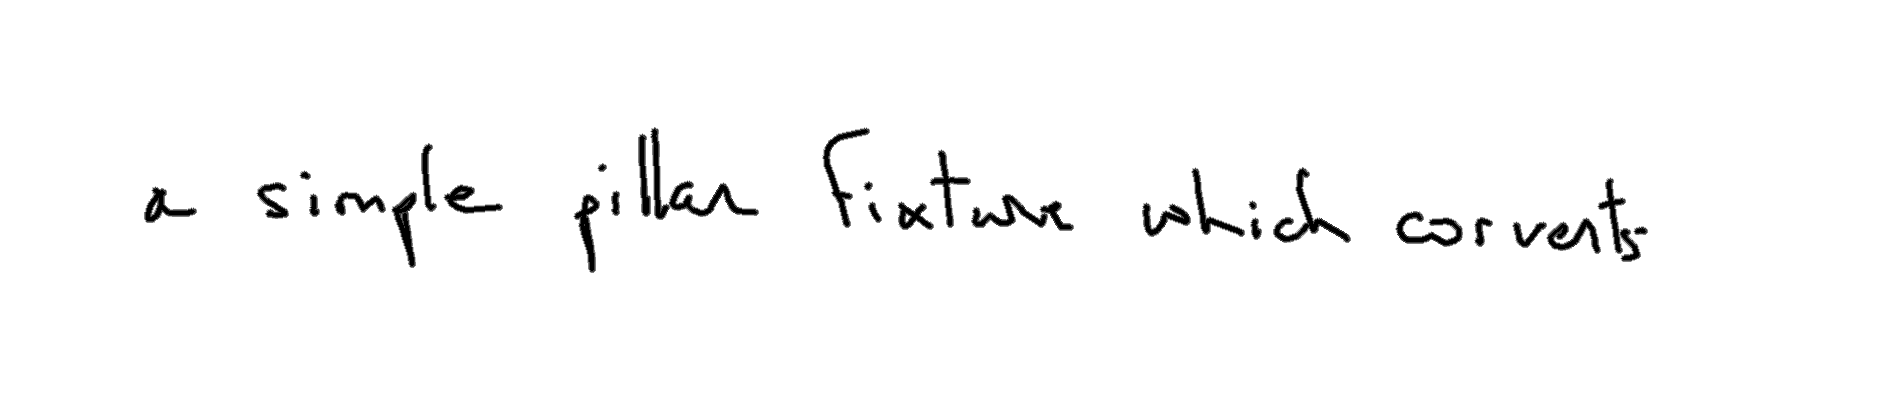 a simple pillar fixture which converts